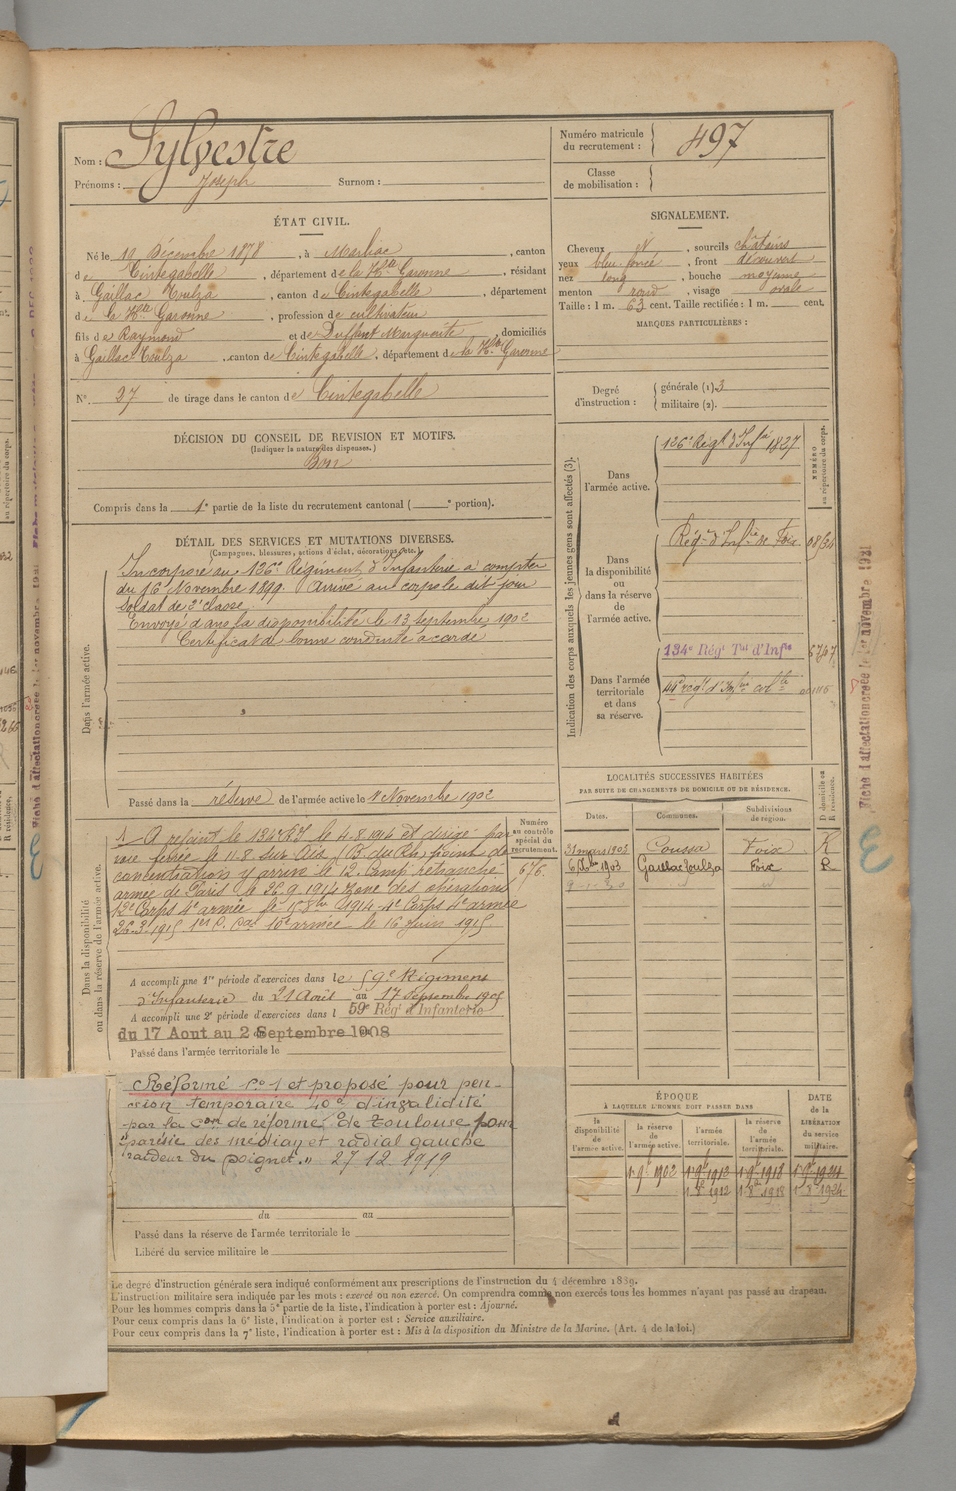 Nom : Sylvestre
Prénoms : Joseph Surnom :
Numéro matricule du recrutement : 497
Classe de mobilisation :
ÉTAT CIVIL.
Né le 10 Décembre 1878, à Marliac, canton
de Cintegabelle, département de la Hte Garonne, résidant
à Gaillac Toulza, canton de Cintegabelle, département
de la Hte Garonne, profession de cultivateur
fils de Raymond et de Marguerite, domiciliés
à Gaillac-Toulza, canton de Cintegabelle, département de la Hte Garonne
N° 27 de tirage dans le canton de Cintegabelle
SIGNALEMENT.
Cheveux N, sourcils châtains
yeux bleu foncé, front découvert
nez long, bouche moyenne
menton rond, visage ovale
Taille : 1 m. 63 cent. Taille rectifiée : 1 m. cent.
MARQUES PARTICULIÈRES :
Degré d'instruction : générale (1) 3
militaire (2).
DÉCISION DU CONSEIL DE REVISION ET MOTIFS.
(Indiquer la nature des dispenses.)
Bon
Compris dans la 1e partie de la liste du recrutement cantonal ( e portion).
DÉTAIL DES SERVICES ET MUTATIONS DIVERSES.
(Campagnes, blessures, actions d'éclat, décorations, etc.)
Dans l'armée active.
Incorporé au 126e Régiment d'Infanterie à compter
du 16 Novembre 1899. Arrivé au corps le dit jour
soldat de 2e classe
Envoyé dans la disponibilité le 13 Septembre 1902
Certificat de bonne conduite accordé
Passé dans la réserve de l'armée active le 1 Novembre 1902
Indication des corps auxquels les jeunes gens sont affectés (3).
NUMÉRO au répertoire du corps.
Dans l'armée active.
126e Régt d'Infie 1827
Dans la disponibilité ou dans la réserve de l'armée active.
Régt d'Infie de Foix
Dans l'armée territoriale et dans sa réserve.
134e Régt Tal d'Infie
régt d'Infie colle
Fiche d'affectation créée le 1er novembre 1931
LOCALITÉS SUCCESSIVES HABITÉES
PAR SUITE DE CHANGEMENTS DE DOMICILE OU DE RÉSIDENCE.
Dates. Communes. Subdivisions de région. D domicile ou R résidence.
31 mars 1903 Coussa Foix R
1903 Gaillac Toulza Foix R
Dans la disponibilité ou dans la réserve de l'armée active.
Numéro au contrôle spécial du recrutement.
676
A rejoint le 134e le 4.8.1914 et dirigé par
voie ferrée le 11.8 sur Aix (B. du Rh.) point de
concentration y arrive le 12. Camp retranché
armée de Paris le 26.9.1914 zone des opérations
12e Corps 4e armée le 1914 4e Corps 4e armée
26.3.1915 10e armée le 16 Juin 1915
A accompli une 1re période d'exercices dans le 59e Régiment
d'Infanterie du 21 Août au 17 Septembre 1905
A accompli une 2e période d'exercices dans l 59e Régt d'Infanterie
du 17 Aout au 2 Septembre 1908
Passé dans l'armée territoriale le
Réformé No 1 et proposé pour pen-
sion temporaire 40% d'invalidité
par la Con de réforme de Toulouse pour
"parésie des médian et radial gauche
raideur du poignet." 27 12 1919
du au
Passé dans la réserve de l'armée territoriale le
Libéré du service militaire le
ÉPOQUE
À LAQUELLE L'HOMME DOIT PASSER DANS
la disponibilité de l'armée active.
la réserve de l'armée active.
l'armée territoriale.
la réserve de l'armée territoriale.
DATE de la LIBÉRATION du service militaire.
1902 1912 1918 1924
1912 1918 1924
Le degré d'instruction générale sera indiqué conformément aux prescriptions de l'instruction du 4 décembre 1889.
L'instruction militaire sera indiquée par les mots : exercé ou non exercé. On comprendra comme non exercés tous les hommes n'ayant pas passé au drapeau.
Pour les hommes compris dans la 5e partie de la liste, l'indication à porter est : Ajourné.
Pour ceux compris dans la 6e liste, l'indication à porter est : Service auxiliaire.
Pour ceux compris dans la 7e liste, l'indication à porter est : Mis à la disposition du Ministre de la Marine. (Art. 4 de la loi.)